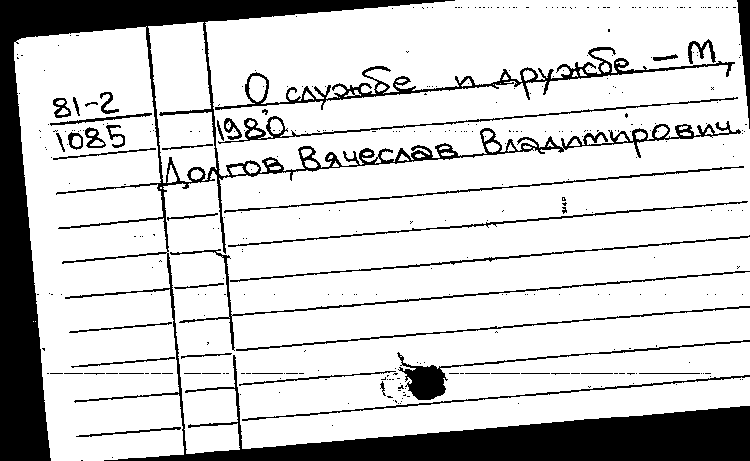 О службе и дружбе. – М.,
81-2
1085
1980.
Долгов, Вячеслав Владимирович.